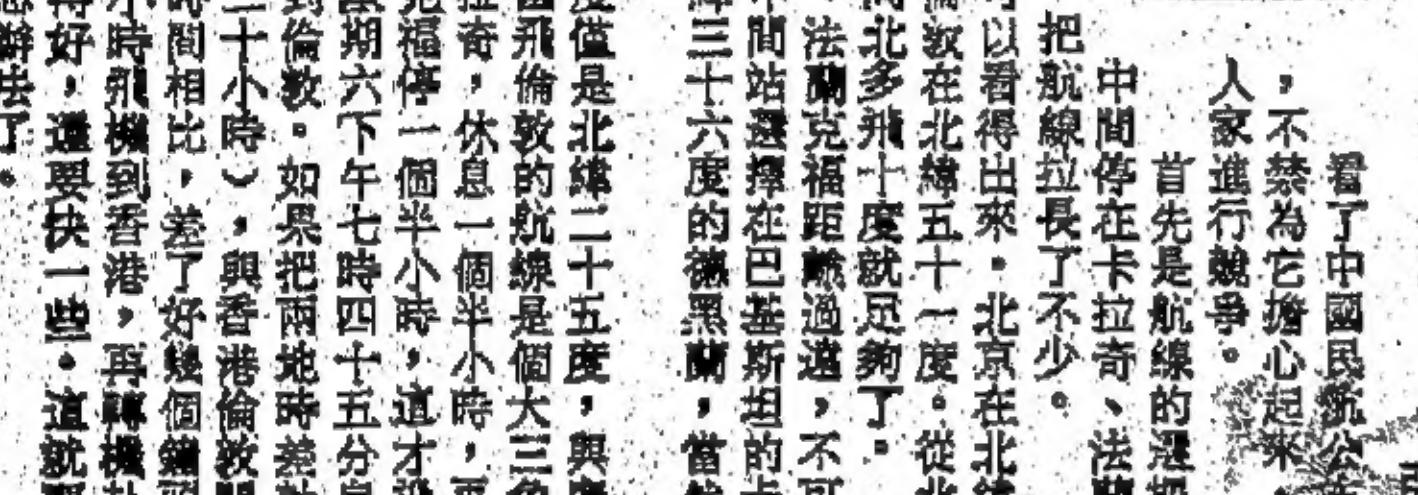 看了中國民航公
，不禁為它擔心起來，
人家進行競爭。
首先是航線的選
中間停在卡拉奇、法蘭
把航線拉長了不少。
以看得出來。北京在北緯
倫敦在北緯五十一度。從北
北多飛十度就足夠了。
法蘭克福距離過遠，不可
間站選擇在巴基斯坦的卡
緯三十六度的德黑蘭，當
度僅是北緯二十五度，與
飛倫敦的航線是個大三角
拉奇，休息一個半小時，再
克福停一個半小時，這才
期六下午七時四十五分
到倫敦。如果把兩地時差
二十小時），與香港倫敦間
時間相比，差了好幾個鐘頭
小時飛機到香港，再轉機
好，還要快一些。這就
辦法了。